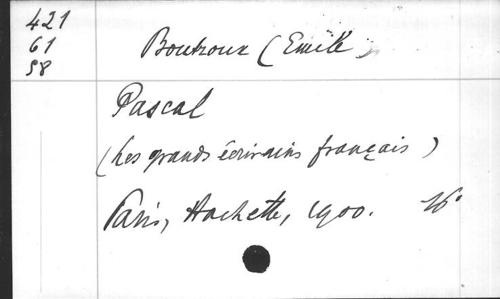 421
61
58
Boutroux (Emile)
Pascal
(Les grands écrivains français)
Paris, Hachette, 1900. 16°